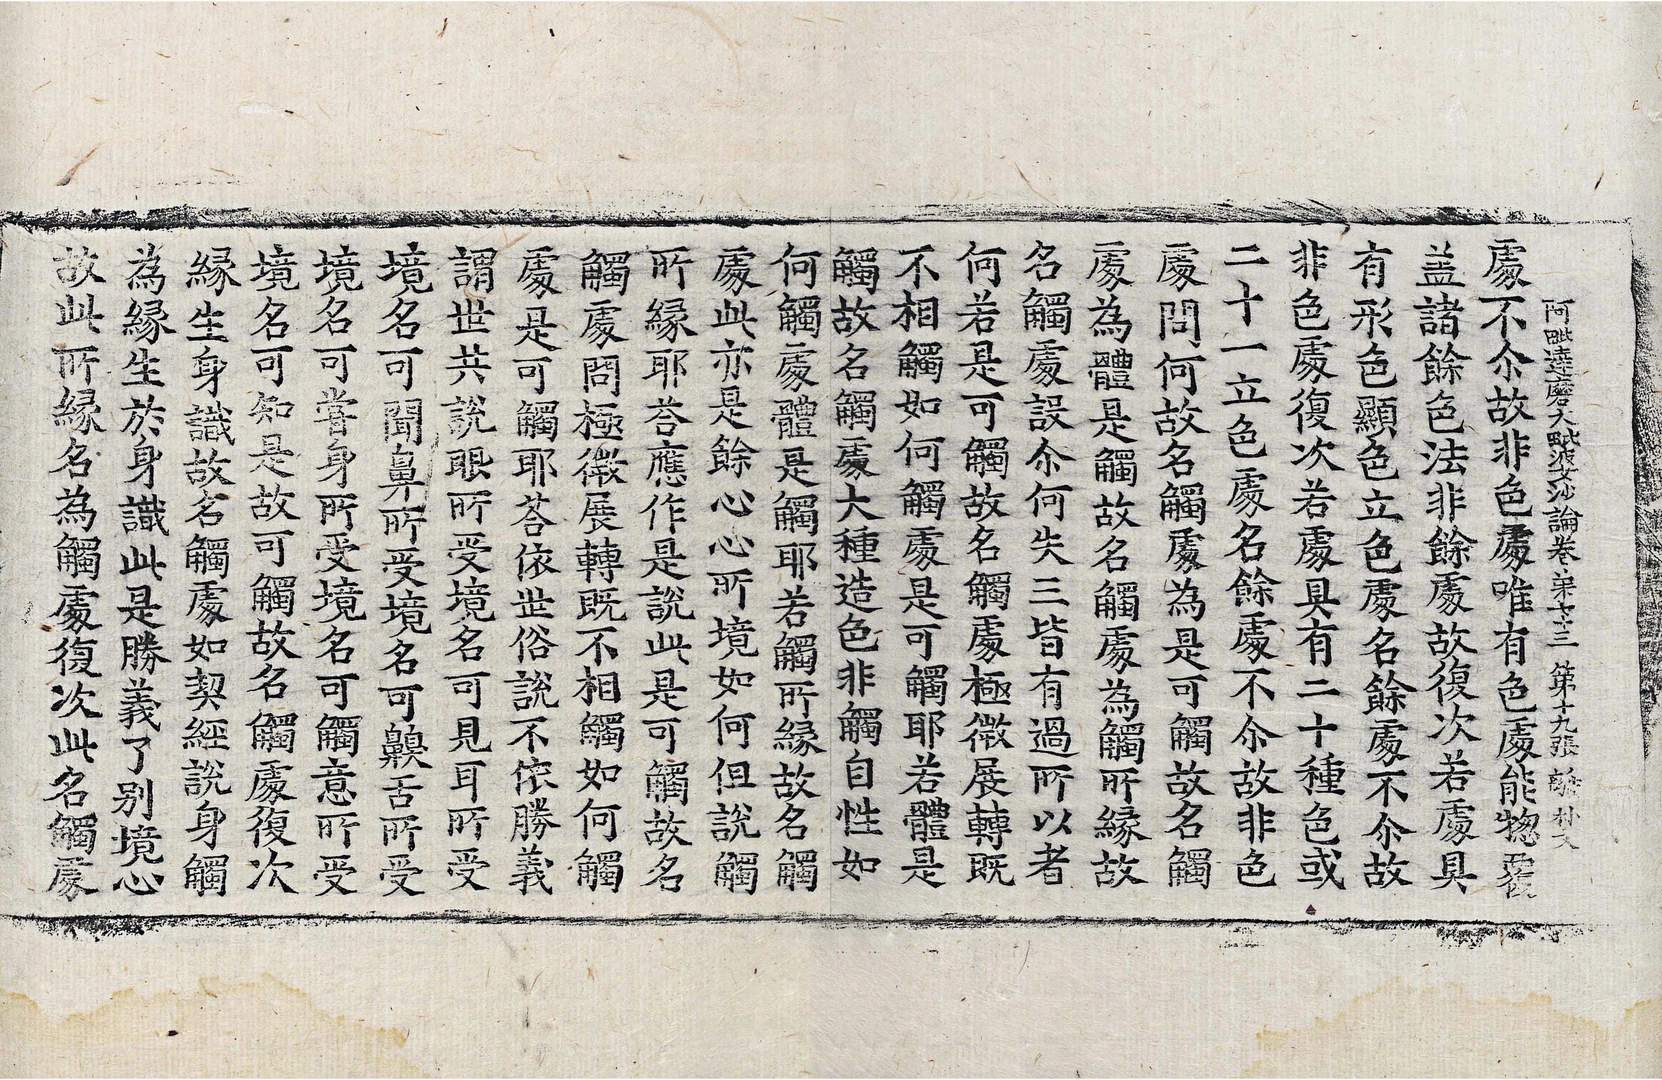 阿毗達磨大毗婆沙論卷第七十三 第十九張 朴文
處不尒故非色處唯有色處能惣覆
盖諸餘色法非餘處故復次若處具
有形色顯色立色處名餘處不尒故
非色處復次若處具有二十種色或
二十一立色處名餘處不尒故非色
處問何故名觸處為是可觸故名觸
處為體是觸故名觸處為觸所緣故
名觸處設尒何失三皆有過所以者
何若是可觸故名觸處極微展轉既
不相觸如何觸處是可觸耶若體是
觸故名觸處大種造色非觸自性如
何觸處體是觸耶若觸所緣故名觸
處此亦是餘心心所境如何但說觸
所緣耶荅應作是說此是可觸故名
觸處問極微展轉既不相觸如何觸
處是可觸耶荅依世俗說不依勝義
謂世共說眼所受境名可見耳所受
境名可聞鼻所受境名可齅舌所受
境名可嘗身所受境名可觸意所受
境名可知是故可觸故名觸處復次
緣生身識故名觸處如契經說身觸
為緣生於身識此是勝義了別境心
故此所緣名為觸處復次此名觸處